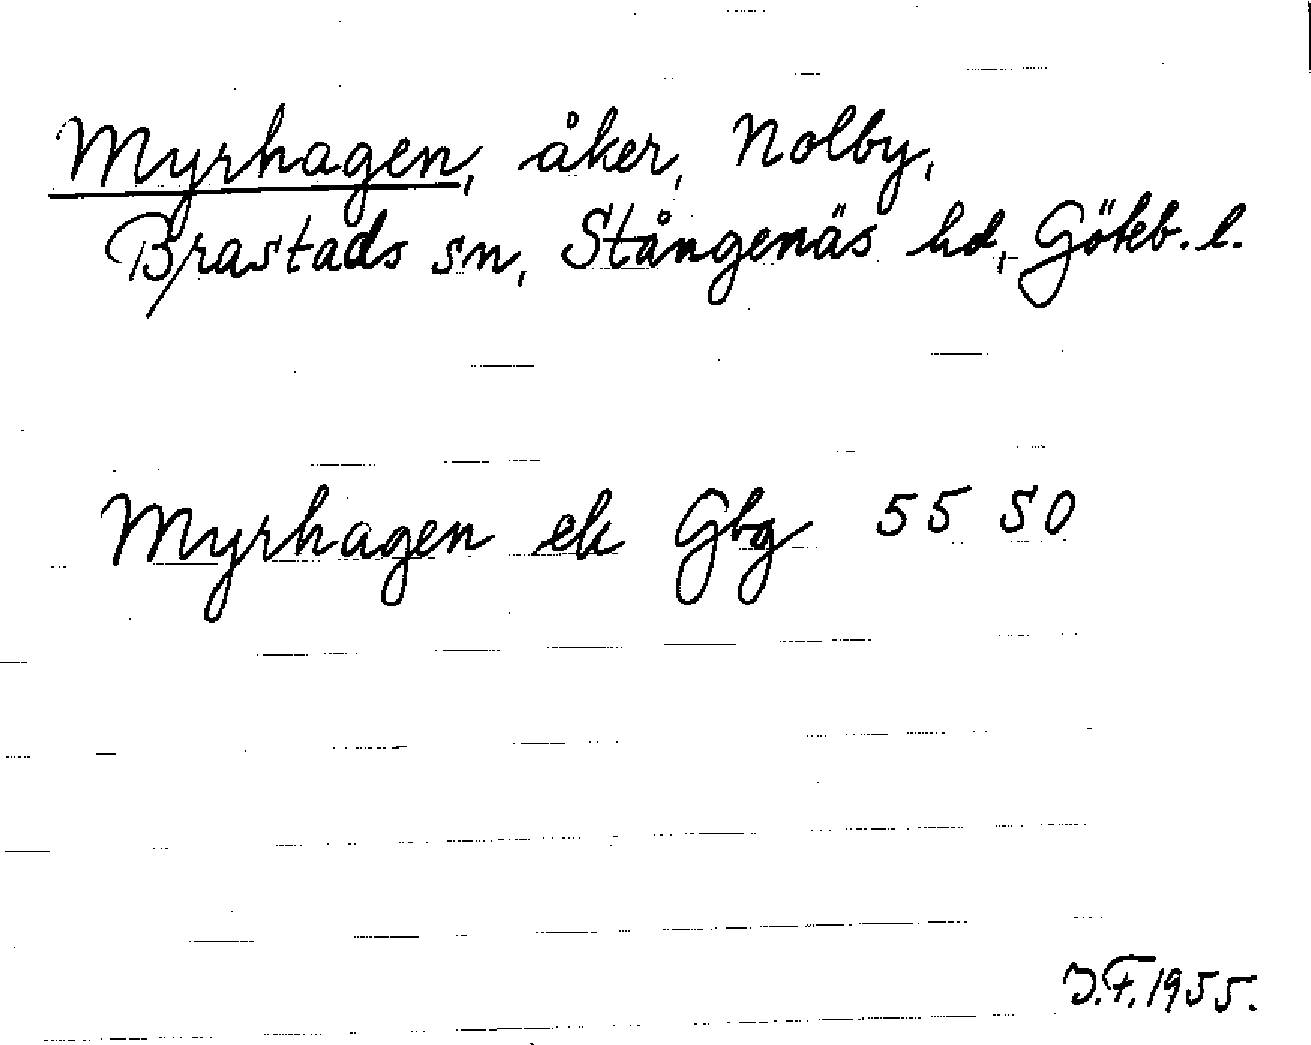 Myrhagen, åker, Nolby,
Brastads sn, Stångenäs hd, Göteb. l.
Myrhagen ek Gbg 55 50
J.F. 1955.